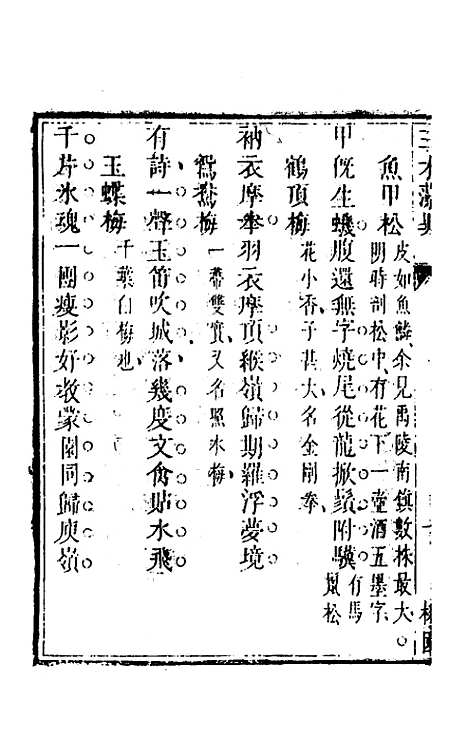 魚甲松 皮如魚鱗余見禹陵南鎮數株最大
明時剖松中有花下一壺酒五墨字
甲旣生蟣腹還無字燒尾從龍掀鬚附驥 有馬鬛松
鶴頂梅 花小香子甚大名金剛拳
衲衣摩拳羽衣摩頂緱嶺歸期羅浮夢境
鴛鴦梅 一蒂雙實又名照水梅
有詩一聲玉笛吹城落幾度文禽貼水飛
玉蝶梅 千葉白梅也
千片氷魂一團瘦影好敎蒙園同歸庾嶺